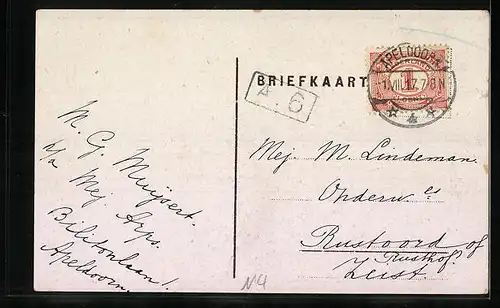 BRIEFKAART
A. 6
APELDOORN
-1.VIII.17.7-8N
4
1
M. G. Muijsert.
p/a Mej. Arps.
Bilitonlaan 1.
Apeldoorn.
Mej. M. Lindeman
Onderw. es
Rustoord of
Rusthof.
Zeist.
N4